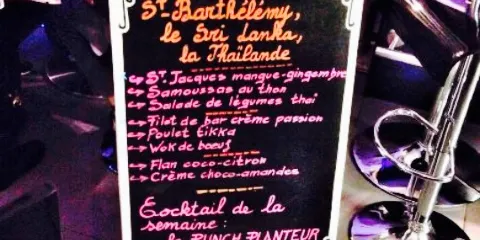 St Barthélémy,
le Sri Lanka,
la Thaïlande
St Jacques mangue-gingembre
Samoussas au thon
Salade de légumes thaï
Filet de bar crème passion
Poulet tikka
Wok de boeuf
Flan coco-citron
Crème choco-amandes
Cocktail de la
semaine :
le PUNCH PLANTEUR